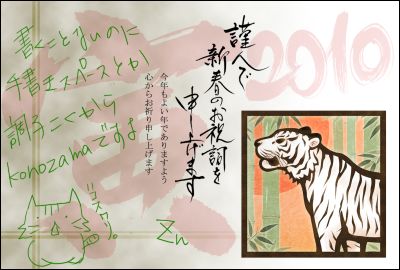 2010
謹んで
新春のお祝詞を
申し上げます
今年もよい年でありますよう
心からお祈り申し上げます
書くことないのに
手書きスペースとか
調子こくから
konozamaですよ